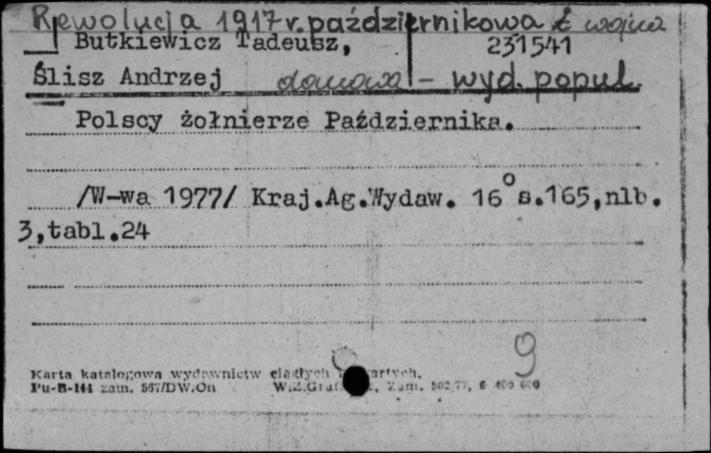 Rewolucja 1917 r. październikowa i wojna
Butkiewicz Tadeusz, 231541
Ślisz Andrzej domowa - wyd. popul.
Polscy żołnierze Października.
/W-wa 1977/ Kraj.Ag.Wydaw. 16° s.165,nlb.
3,tabl.24
9
Karta katalogowa wydawnictw ciągłych
Pu-B-144 zam. 567/DW.On W.Z.Graf. Zam.